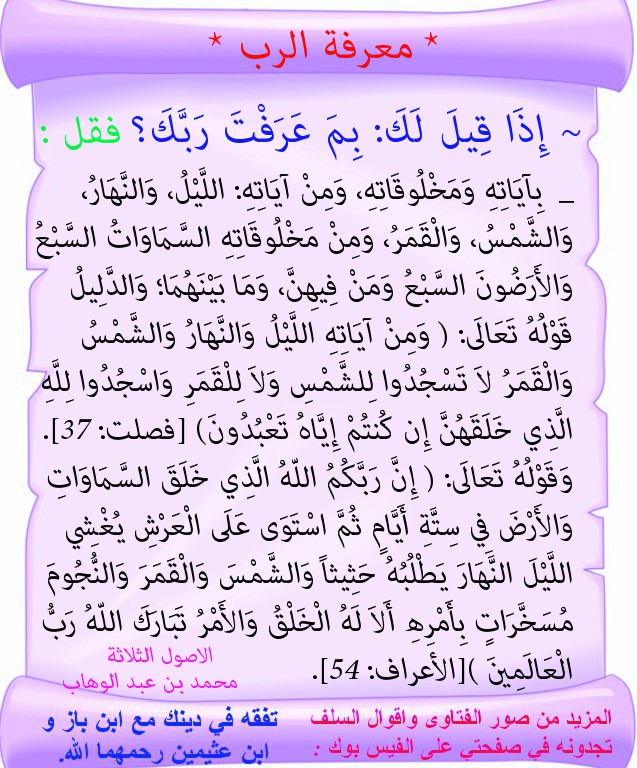 * معرفة الرب *
~ إِذَا قِيلَ لَكَ: بِمَ عَرَفْتَ رَبَّكَ؟ فقل :
_ بِآيَاتِهِ وَمَخْلُوقَاتِهِ، وَمِنْ آيَاتِهِ: اللَّيْلُ، وَالنَّهَارُ،
وَالشَّمْسُ، وَالْقَمَرُ، وَمِنْ مَخْلُوقَاتِهِ السَّمَاوَاتُ السَّبْعُ
وَالأَرَضُونَ السَّبْعُ وَمَنْ فِيهِنَّ، وَمَا بَيْنَهُمَا؛ وَالدَّلِيلُ
قَوْلُهُ تَعَالَى: ( وَمِنْ آيَاتِهِ اللَّيْلُ وَالنَّهَارُ وَالشَّمْسُ
وَالْقَمَرُ لاَ تَسْجُدُوا لِلشَّمْسِ وَلاَ لِلْقَمَرِ وَاسْجُدُوا لِلَّهِ
الَّذِي خَلَقَهُنَّ إِن كُنتُمْ إِيَّاهُ تَعْبُدُونَ) [فصلت: 37].
وَقَوْلُهُ تَعَالَى: ( إِنَّ رَبَّكُمُ اللّهُ الَّذِي خَلَقَ السَّمَاوَاتِ
وَالأَرْضَ فِي سِتَّةِ أَيَّامٍ ثُمَّ اسْتَوَى عَلَى الْعَرْشِ يُغْشِي
اللَّيْلَ النَّهَارَ يَطْلُبُهُ حَثِيثاً وَالشَّمْسَ وَالْقَمَرَ وَالنُّجُومَ
مُسَخَّرَاتٍ بِأَمْرِهِ أَلاَ لَهُ الْخَلْقُ وَالأَمْرُ تَبَارَكَ اللّهُ رَبُّ
الْعَالَمِينَ )[الأعراف: 54].
الاصول الثلاثة
محمد بن عبد الوهاب
المزيد من صور الفتاوى واقوال السلف
تجدونه في صفحتي على الفيس بوك :
تفقه في دينك مع ابن باز و
ابن عثيمين رحمهما الله.